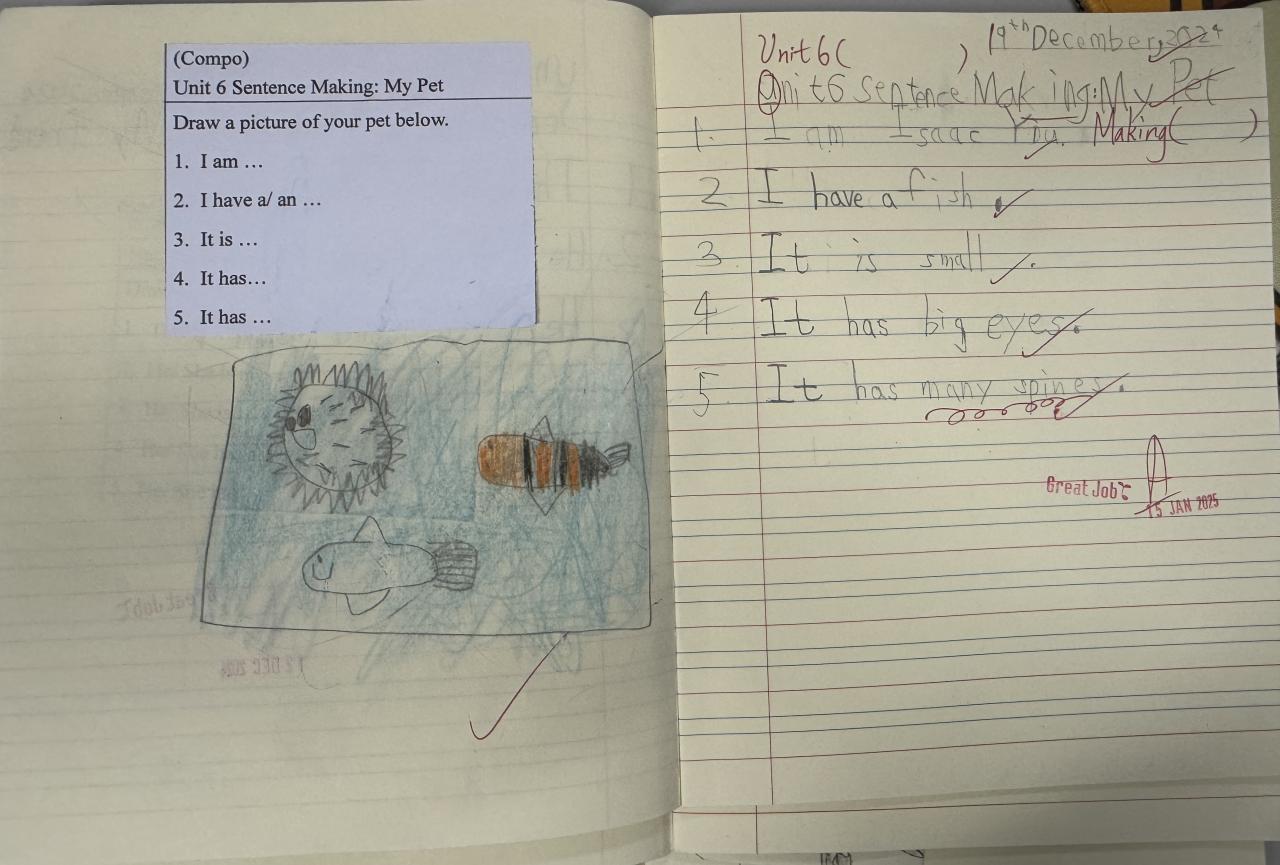 (Compo)
Unit 6 Sentence Making: My Pet
Draw a picture of your pet below.
1. I am …
2. I have a/ an …
3. It is …
4. It has…
5. It has …
19th December, 2024
Unit 6 ( )
Unit 6 Sentence Making: My Pet
1. I am Isaac
Making ( )
2 I have a fish.
3 It is small.
4 It has big eyes.
5 It has many spines.
Great Job
15 JAN 2025